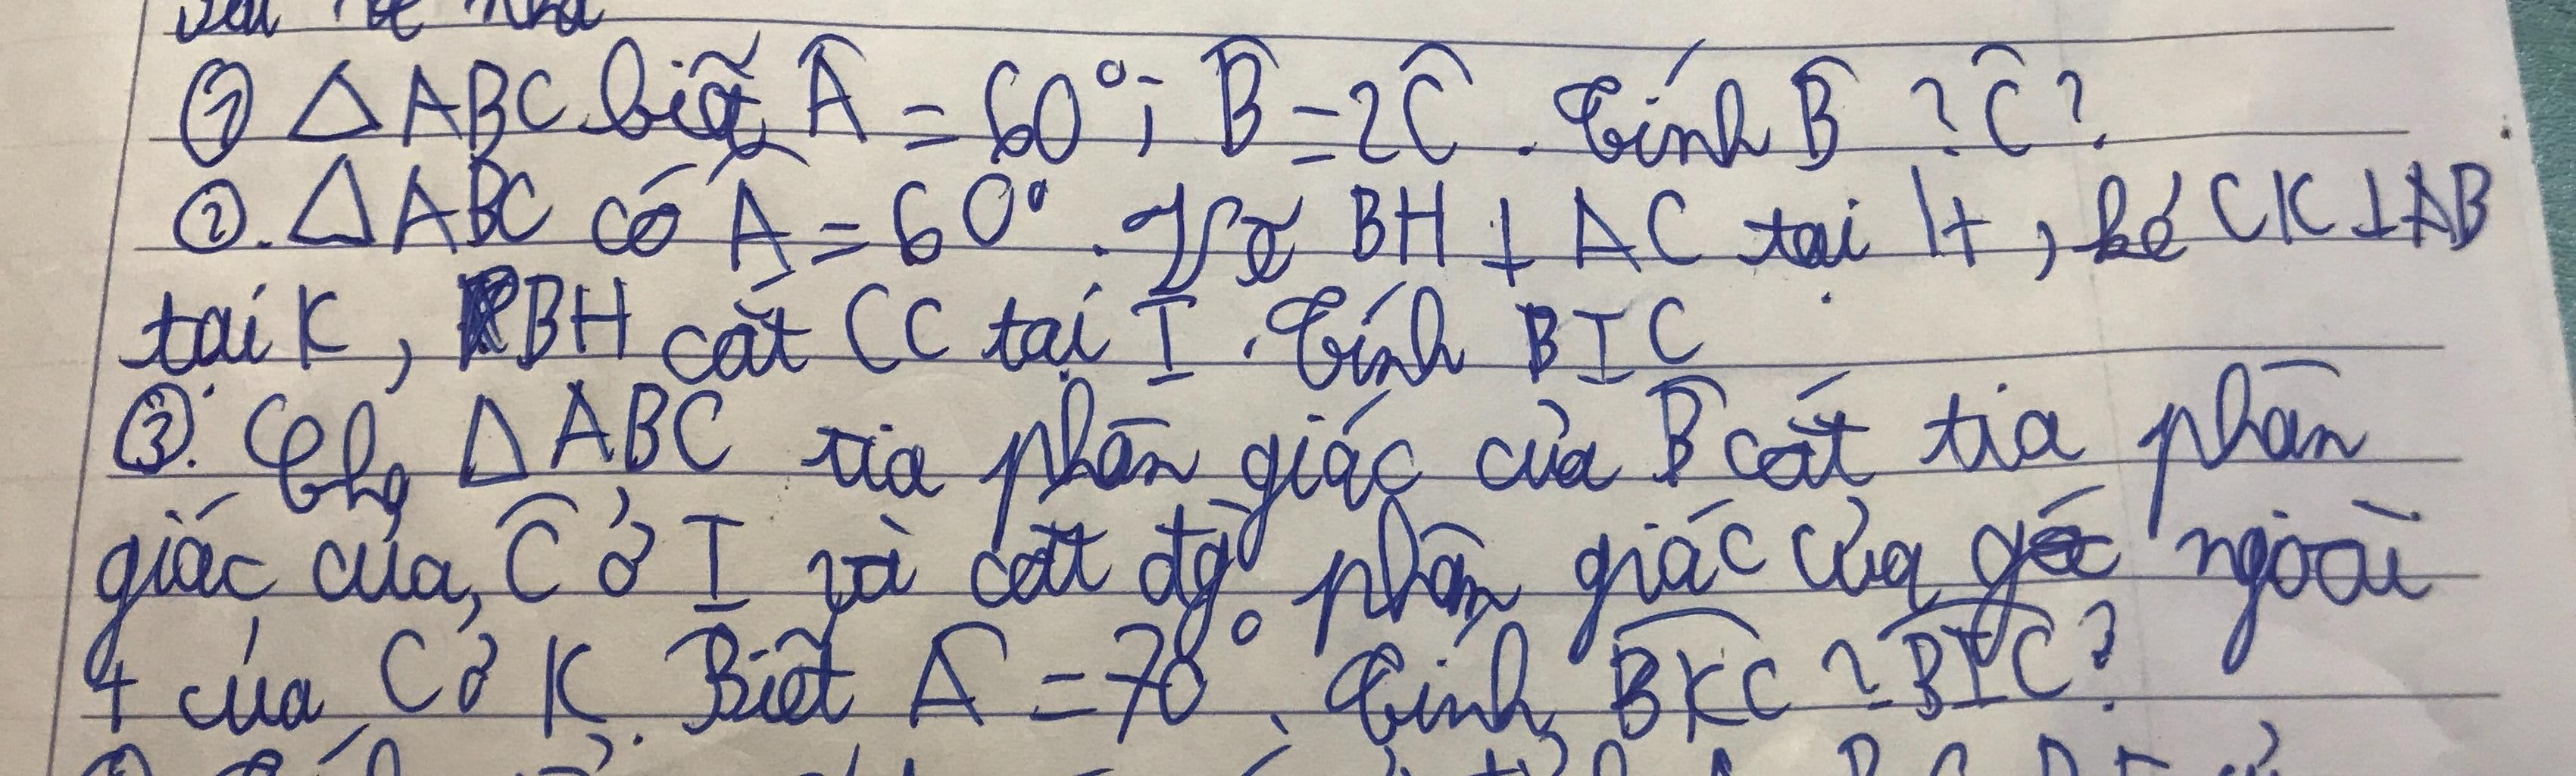 ① △ABC biết Â = 60°; B̂ = 2Ĉ. Tính B̂ ? Ĉ ?
②. △ABC có Â = 60°. Vẽ BH ⊥ AC tại H, kẻ CK ⊥ AB
tại K, BH cắt CC tại I. Tính BIC
③. Cho △ABC tia phân giác của B̂ cắt tia phân
giác của Ĉ ở I và cắt đg phân giác của góc ngoài
của C ở K. Biết Â = 70°. Tính B̂KC ? B̂IC ?